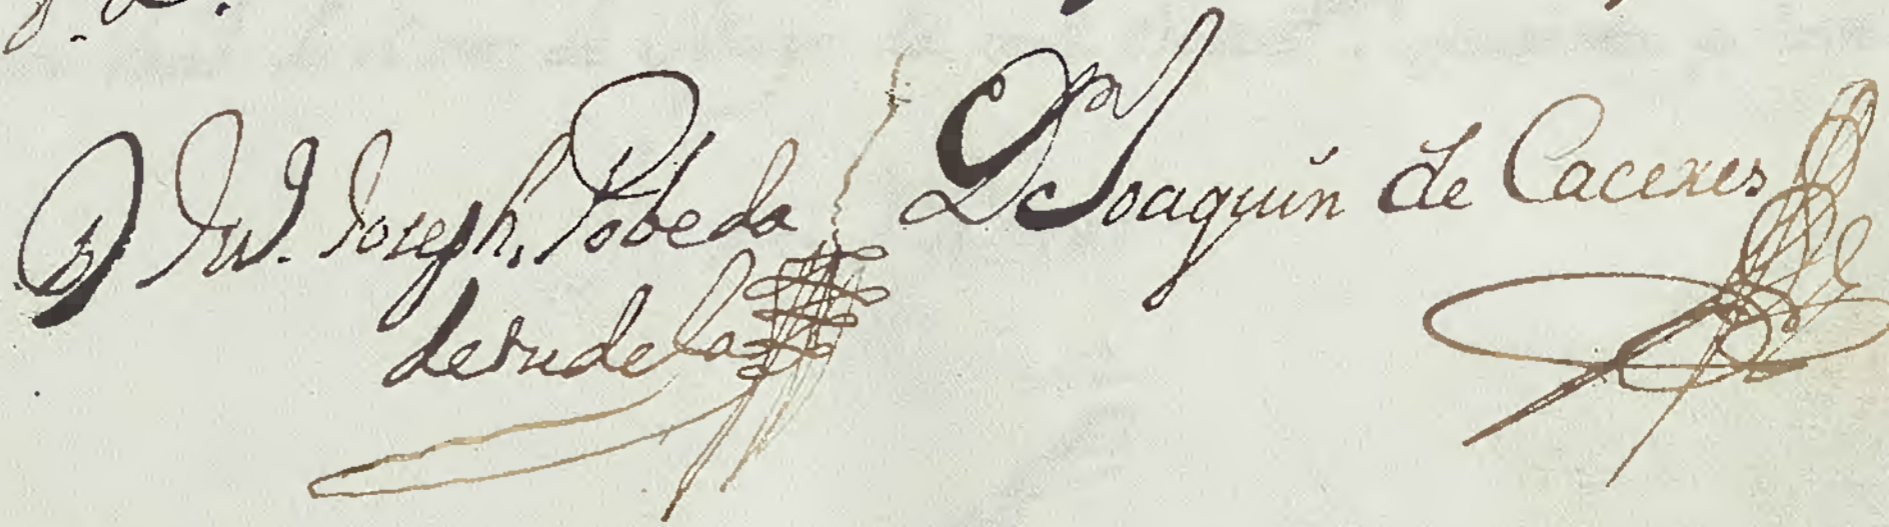 Joseph Pobeda
detudela
Dⁿ Joaquin de Caceres